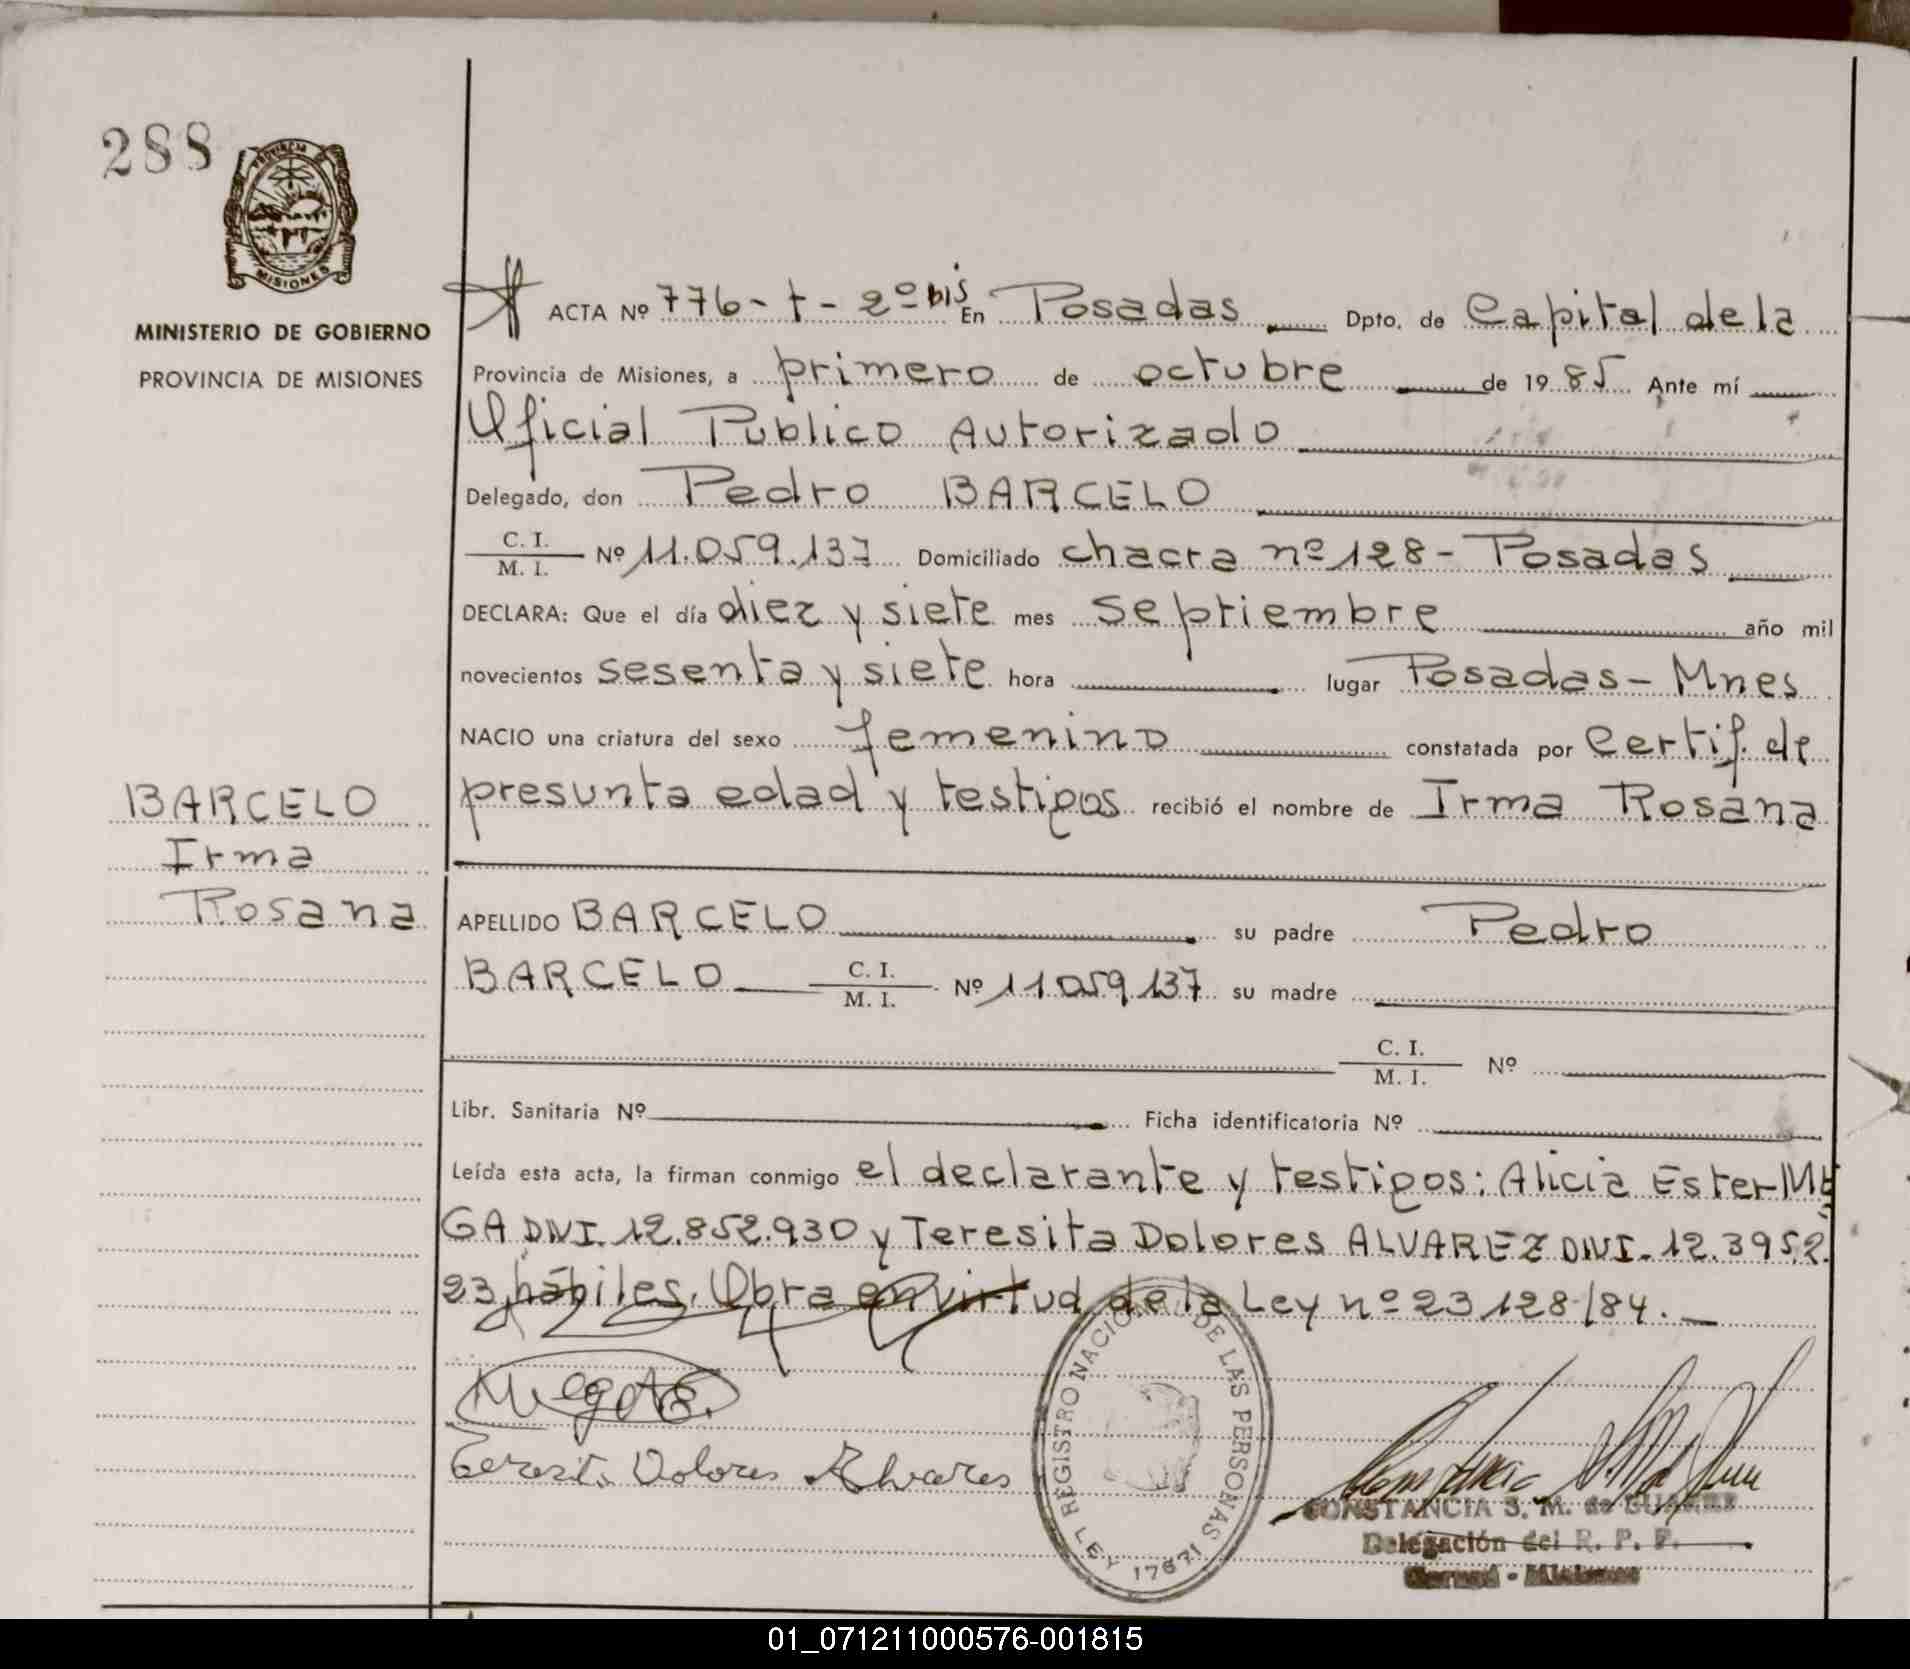 288
PROVINCIA
MISIONES
MINISTERIO DE GOBIERNO
PROVINCIA DE MISIONES
ACTA Nº 776-t-2º bis En Posadas Dpto. de Capital de la
Provincia de Misiones, a primero de octubre de 1985 Ante mí
Oficial Publico Autorizado
Delegado, don Pedro BARCELO
C. I.
M. I. Nº 11.059.137 Domiciliado chacra nº 128 - Posadas
DECLARA: Que el día diez y siete mes septiembre año mil
novecientos sesenta y siete hora lugar Posadas - Mnes
NACIO una criatura del sexo femenino constatada por Certif. de
presunta edad y testigos recibió el nombre de Irma Rosana
BARCELO
Irma
Rosana
APELLIDO BARCELO su padre Pedro
BARCELO C. I.
M. I. Nº 11.059.137 su madre
C. I.
M. I. Nº
Libr. Sanitaria Nº Ficha identificatoria Nº
Leída esta acta, la firman conmigo el declarante y testigos: Alicia Ester ME
GA DNI. 12.852.930 y Teresita Dolores ALVAREZ DNI. 12.395.2
23 hábiles. Obra en virtud de la Ley nº 23128/84.
Teresita Dolores Alvares
REGISTRO NACIONAL DE LAS PERSONAS
LEY 17671
CONSTANCIA S. M. de
Delegación del R. P. F.
01_071211000576-001815